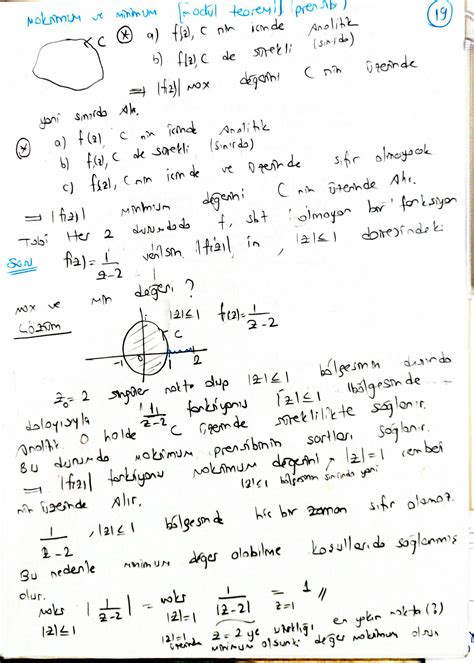 Maksimum ve minimum (modül teoremi) (prensibi) (19)
C (*) a) f(z), C nin içinde Analitik
b) f(z), C de sürekli (sınırda)
⇒ |f(z)| max değerini C nin üzerinde
yani sınırda Alır.
(*) a) f(z), C nin içinde Analitik
b) f(z), C de sürekli (sınırda)
c) f(z), C nin içinde ve üzerinde sıfır olmayacak
⇒ |f(z)| minimum değerini C nin üzerinde Alır.
Tabi Her 2 durumda da f, sbt olmayan bir fonksiyon
f(z) = 1/(z-2) verilsin. |f(z)| in, |z|≤1 dairesindeki
max ve min değeri ?
Çözüm |z|≤1 f(z)=1/(z-2)
C
-1 0 1 2
z₀=2 singüler nokta olup |z|≤1 bölgesinin dışında
dolayısıyla 1/(z-2) fonksiyonu |z|≤1 bölgesinde
Analitik. O halde C üzerinde süreklilikte sağlanır.
Bu durumda maksimum prensibinin şartları sağlanır.
⇒ |f(z)| fonksiyonu maksimum değerini |z|=1 çemberi
nin üzerinde Alır. |z|≤1 bölgesinin sınırında yani
1/(z-2), |z|≤1 bölgesinde hiç bir zaman sıfır olamaz.
Bu nedenle minimum değer olabilme koşullarıda sağlanmış
olur.
maks |z|≤1 |1/(z-2)| = maks |z|=1 1/|z-2| = 1 z=1 //
|z|=1 üzerinde z=2 ye uzaklığı en yakın nokta (?)
minimum olsunki değer maksimum olsun